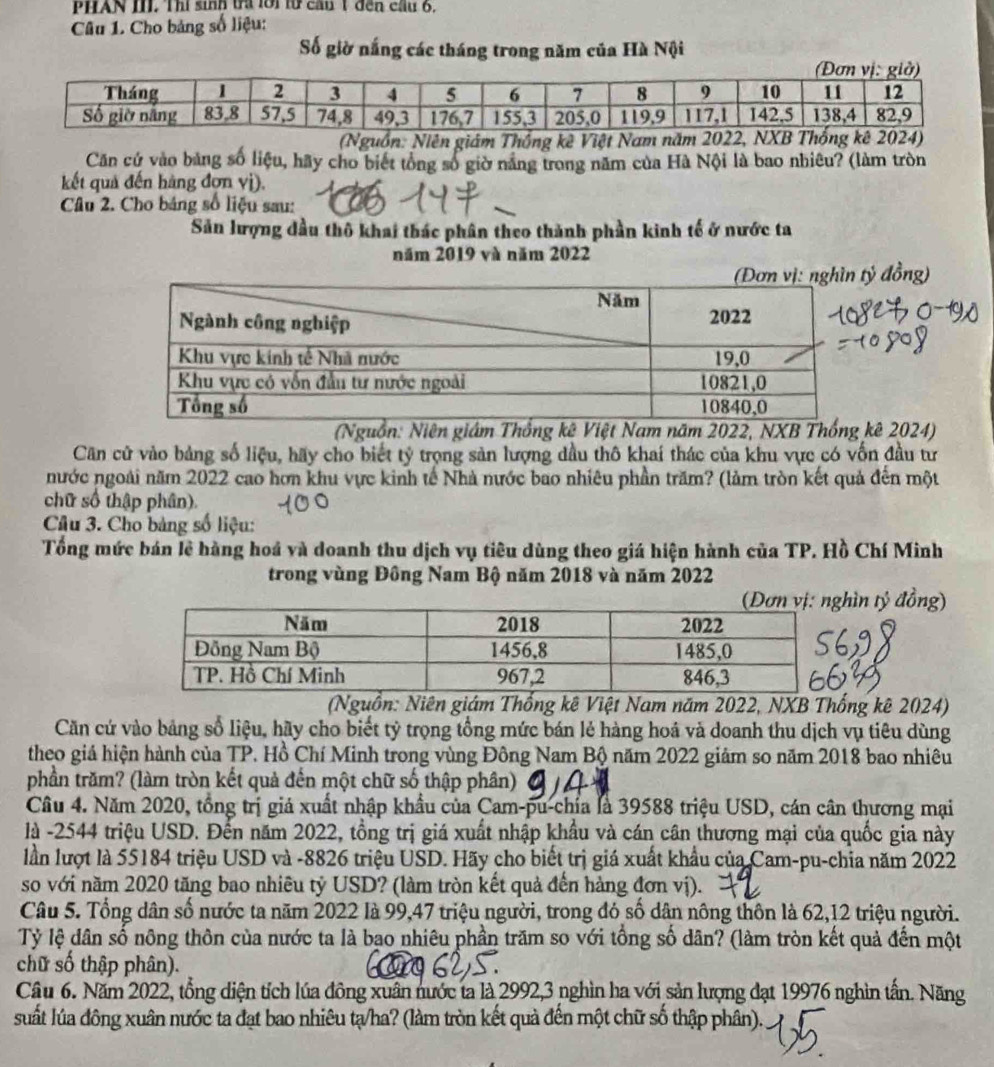 PHẦN III. Thí sinh trả lời từ câu 1 đến câu 6.
Câu 1. Cho bảng số liệu:
Số giờ nắng các tháng trong năm của Hà Nội
(Đơn vị: giờ)
Tháng 1 2 3 4 5 6 7 8 9 10 11 12
Số giờ nắng 83,8 57,5 74,8 49,3 176,7 155,3 205,0 119,9 117,1 142,5 138,4 82,9
(Nguồn: Niên giám Thống kê Việt Nam năm 2022, NXB Thống kê 2024)
Căn cứ vào bảng số liệu, hãy cho biết tổng số giờ nắng trong năm của Hà Nội là bao nhiêu? (làm tròn
kết quả đến hàng đơn vị).
147
Câu 2. Cho bảng số liệu sau:
Sản lượng dầu thô khai thác phân theo thành phần kinh tế ở nước ta
năm 2019 và năm 2022
(Đơn vị: nghìn tỷ đồng)
Năm
Ngành công nghiệp 2022
Khu vực kinh tế Nhà nước 19,0
Khu vực có vốn đầu tư nước ngoài 10821,0
Tổng số 10840,0
=10808
(Nguồn: Niên giám Thống kê Việt Nam năm 2022, NXB Thống kê 2024)
Căn cứ vào bảng số liệu, hãy cho biết tỷ trọng sản lượng dầu thô khai thác của khu vực có vốn đầu tư
nước ngoài năm 2022 cao hơn khu vực kinh tế Nhà nước bao nhiêu phần trăm? (làm tròn kết quả đến một
chữ số thập phân).
100
Câu 3. Cho bảng số liệu:
Tổng mức bán lẻ hàng hoá và doanh thu dịch vụ tiêu dùng theo giá hiện hành của TP. Hồ Chí Minh
trong vùng Đông Nam Bộ năm 2018 và năm 2022
(Đơn vị: nghìn tỷ đồng)
Năm 2018 2022
Đông Nam Bộ 1456,8 1485,0
TP. Hồ Chí Minh 967,2 846,3
56,98
66,39
(Nguồn: Niên giám Thống kê Việt Nam năm 2022, NXB Thống kê 2024)
Căn cứ vào bảng số liệu, hãy cho biết tỷ trọng tổng mức bán lẻ hàng hoá và doanh thu dịch vụ tiêu dùng
theo giá hiện hành của TP. Hồ Chí Minh trong vùng Đông Nam Bộ năm 2022 giảm so năm 2018 bao nhiêu
phần trăm? (làm tròn kết quả đến một chữ số thập phân) 9,4
Câu 4. Năm 2020, tổng trị giá xuất nhập khẩu của Cam-pu-chia là 39588 triệu USD, cán cân thương mại
là -2544 triệu USD. Đến năm 2022, tổng trị giá xuất nhập khẩu và cán cân thương mại của quốc gia này
lần lượt là 55184 triệu USD và -8826 triệu USD. Hãy cho biết trị giá xuất khẩu của Cam-pu-chia năm 2022
so với năm 2020 tăng bao nhiêu tỷ USD? (làm tròn kết quả đến hàng đơn vị).
Câu 5. Tổng dân số nước ta năm 2022 là 99,47 triệu người, trong đó số dân nông thôn là 62,12 triệu người.
Tỷ lệ dân số nông thôn của nước ta là bao nhiêu phần trăm so với tổng số dân? (làm tròn kết quả đến một
chữ số thập phân). 62,5.
Câu 6. Năm 2022, tổng diện tích lúa đông xuân nước ta là 2992,3 nghìn ha với sản lượng đạt 19976 nghìn tấn. Năng
suất lúa đông xuân nước ta đạt bao nhiêu tạ/ha? (làm tròn kết quả đến một chữ số thập phân).